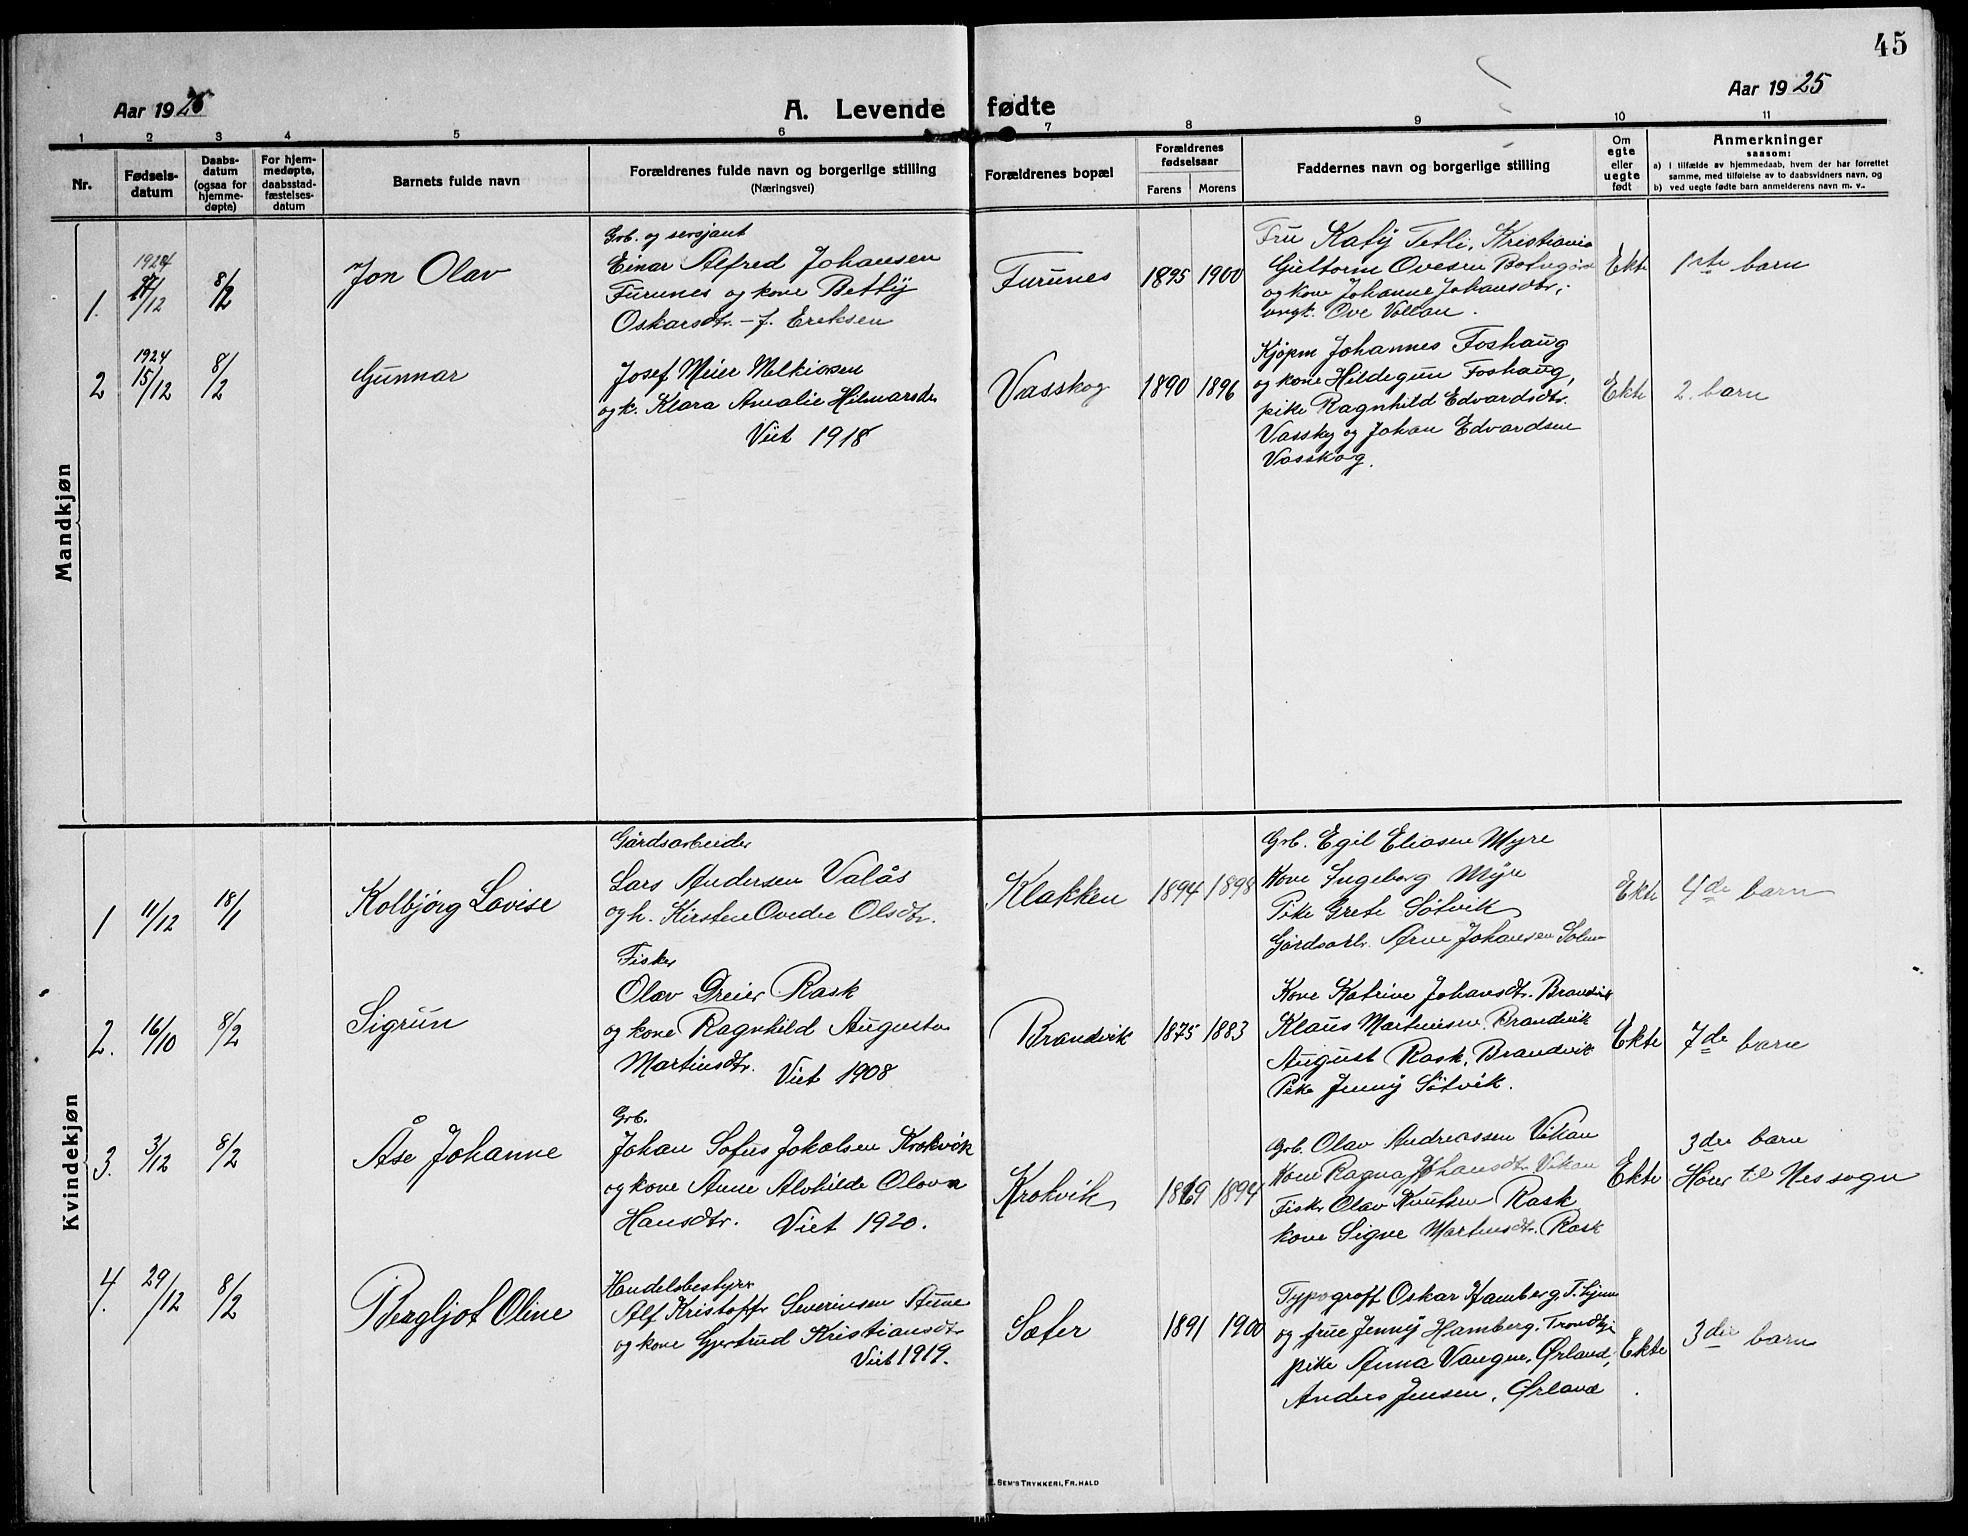 45
Aar 1925
A. Levende fødte
Aar 1925
1 2 3 4 5 6 7 8 9 10 11
Nr.
Fødsels-
datum
Daabs-
datum
(ogsaa for
hjemme-
døpte)
For hjem-
medøpte,
daabsstad-
fæstelses-
datum
Barnets fulde navn
Forældrenes fulde navn og borgerlige stilling
(Næringsvei)
Forældrenes bopæl
Forældrenes
fødselsaar
Farens Morens
Faddernes navn og borgerlige stilling
Om
egte
eller
uegte
født
Anmerkninger
saasom:
a) i tilfælde av hjemmedaab, hvem der har forrettet
samme, med tilføielse av to daabsvidners navn, og
b) ved uegte fødte barn anmelderens navn m. v..
Mandkjøn
1.
1924
/12
8/2
Jon Olav
Grb. og sersjant
Einar Alfred Johansen
Furunes og kone Betty
Oskarsdtr. - f. Eriksen
Furunes
1895 1900
Fru Katy Tetli, Kristiania
Guttorm Ovesen
og kone Johanne Johansdtr.;
ungk. Ove Vollan.
Ekte
1ste barn
2
1924
15/12
8/2
Gunnar
Josef Meier Melkiorsen
og k. Klara Amalie Hilmarsdtr
Viet 1918
Vasskog
1890 1896
Kjøpm Johannes Foshaug
og kone Hildegun Foshaug,
pike Ragnhild Edvardsdtr.
Vasskog og Johan Edvardsen
Vasskog.
Ekte
2. barn
Kvindekjøn
1
11/12
18/1
Kolbjørg Lovise
Gårdsarbeider
Lars Andersen Valås
og h. Kirsten Ovedie Olsdtr.
Klakken
1894 1898
Grb. Egil Eliasen Myre
Kone Ingeborg Myre
Pike Grete Søtvik
Gårdsarb. Arne Johansen
Ekte
4de barn
2.
16/10
8/2
Sigrun
Fisker
Olav Dreier Rask
og kone Ragnhild Augusta
Martinsdtr. Viet 1908
Brandvik
1875 1883
Kone Katrine Johansdtr. Brandvik
Klaus Martinsen Brandvik
August Rask, Brandvik
Pike Jenny Søtvik.
Ekte
7de barn
3.
3/12
8/2
Åse Johanne
Grb.
Johan Sofus Jakobsen Krokvik
og kone Anne Alvhilde Olava
Hansdtr. Viet 1920.
Krokvik
1894
Grb. Olav Andreassen Vikan
Kone Ragna Johansdtr. Vikan
Fisker Olav Knutsen Rask
kone Signe Martinsdtr. Rask
Ekte
3die barn
Hører til Nes sogn
4.
29/12
8/2
Bergljot Oline
Handelsbestyrer
Alf Kristoffer Severinsen Aune
og kone Gjertrud Kristiansdtr
Viet 1919.
Sæter
1891 1900
Typograff Oskar Hamberg T.hjem
og frue Jenny Hamberg, Trondhjem
pike Anna Vangen, Ørland,
Anders Jensen, Ørland
Ekte
3die barn
E. SEM'S TRYKKERI, FR.HALD